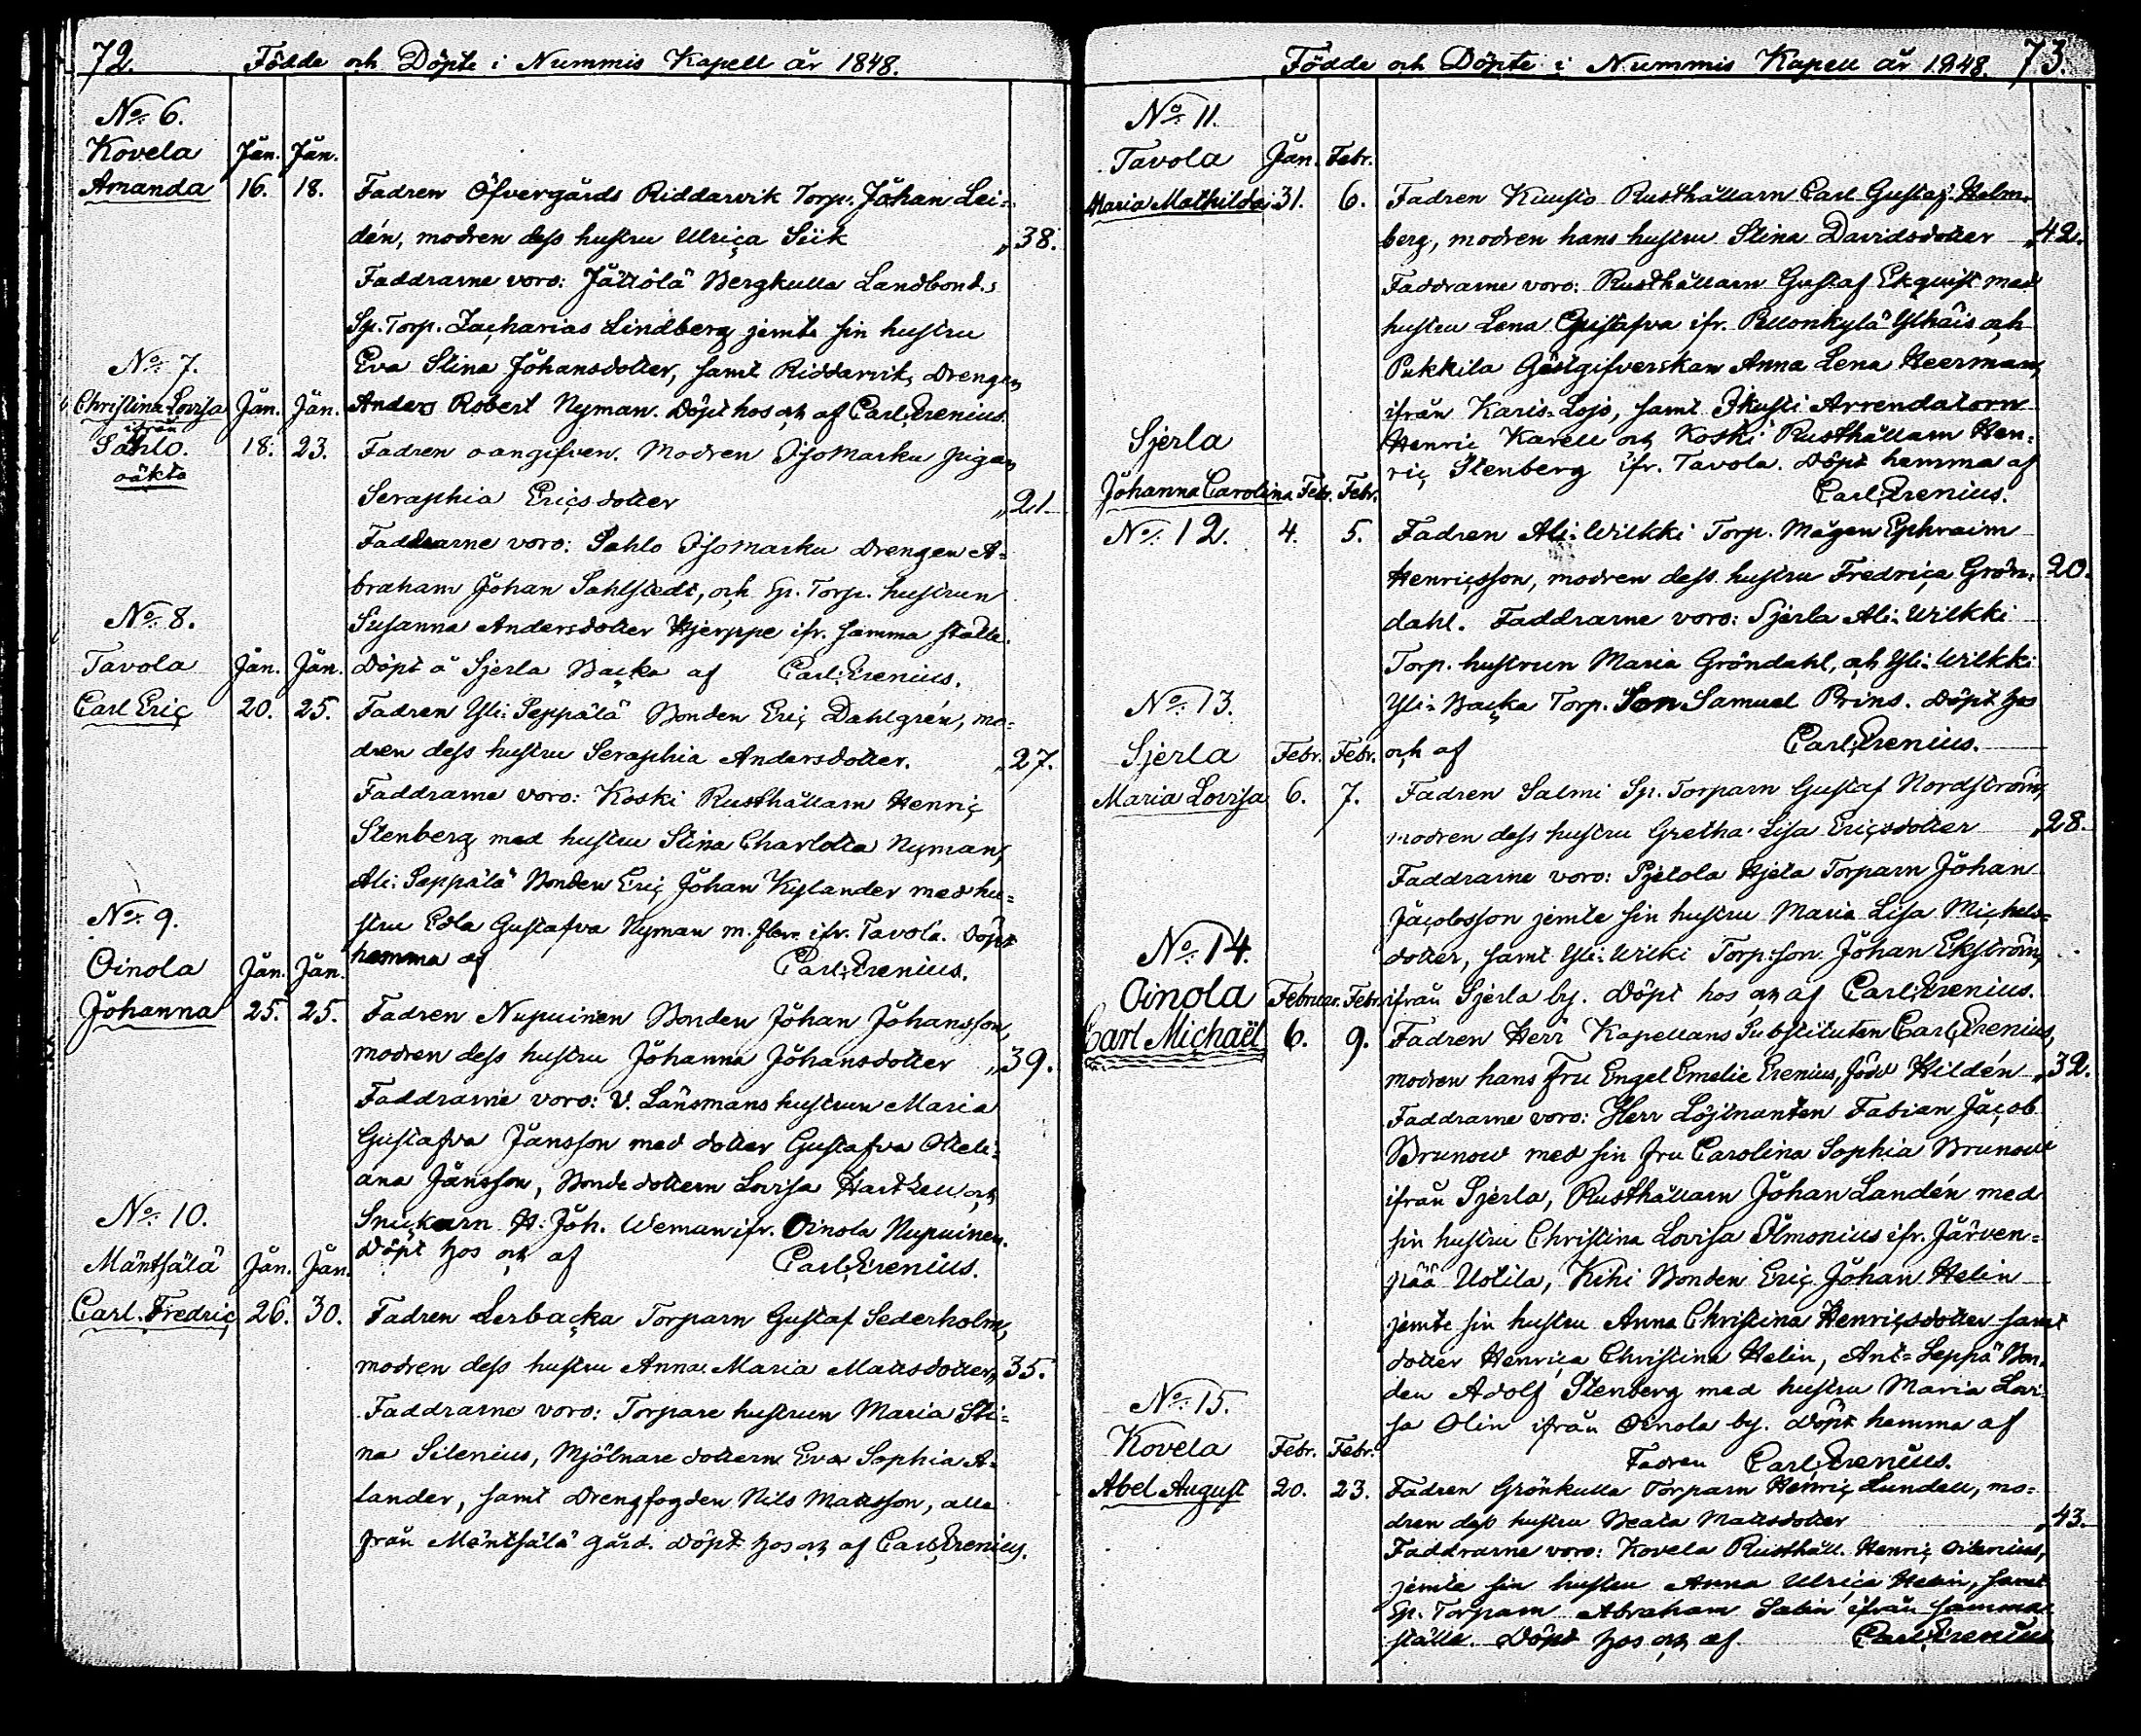 72. Födde och Döpte i Nummis Kapell år 1848.
No 6.
Kovela Jan. Jan.
Amanda 16. 18. Fadren Öfvergårds Riddarvik Torp. Johan Lei=
dén, modren dess hustru Ulrica Siik „38.
Faddrarne voro: Jättölä Bergkulla Landbond.
Sp. Torp. Zacharias Lindberg jemte sin hustru
Eva Stina Johansdotter, samt Riddarviks Drengen
Anders Robert Nyman. Döpt hos och af Carl Erenius.
No 7.
Christina Lovisa Jan. Jan.
ifrån
Sahlo. 18. 23. Fadren oangifven. Modren Isomarku pigan
oäkta
Seraphia Ericsdotter „21
Faddrarne voro: Sahlo Isomarku Drengen A=
braham Johan Sahlstedt, och Sp. Torp. hustrun
Susanna Andersdotter Hjerppe ifr. samma ställe.
Döpt å Sjerla Backa af Carl Erenius.
No 8.
Tavola Jan. Jan.
Carl Eric 20. 25. Fadren Yli-Seppälä Bonden Eric Dahlgrén, mo=
dren dess hustru Seraphia Andersdotter. „27.
Faddrarne voro: Koski Rusthållarn Henric
Stenberg med hustru Stina Charlotta Nyman,
Ali-Seppälä Bonden Eric Johan Kylander med hu=
stru Edla Gustafva Nyman m. flera ifr. Tavola. Döpt
hemma af Carl Erenius.
No 9.
Oinola Jan. Jan.
Johanna 25. 25. Fadren Nupuinen Bonden Johan Johansson,
modren dess hustru Johanna Johansdotter „39.
Faddrarne voro: V. Länsmans hustrun Maria
Gustafva Jansson med dotter Gustafva Otteli=
ana Jansson, Bonde dottern Lovisa Hartzell och
Snickarn H: Joh. Weman ifr. Oinola Nupuinen.
Döpt hos och af Carl Erenius.
No 10.
Mäntsälä Jan. Jan.
Carl Fredric 26. 30. Fadren Lerbacka Torparn Gustaf Sederholm,
modren dess hustru Anna Maria Mattsdotter „35.
Faddrarne voro: Torpare hustrun Maria Sti=
na Silenius, Mjölnare dottern Eva Sophia A=
lander, samt Drengfogden Nils Mattsson, alla
från Mäntsälä gård. Döpt hos och af Carl Erenius.
Födde och Döpte i Nummis Kapell år 1848. 73.
No 11.
Tavola Jan. Febr.
Maria Mathilda 31. 6. Fadren Kuusto Rusthållarn Carl Gustaf Holm=
berg, modren hans hustru Stina Davidsdotter „42.
Faddrarne voro: Rusthållarn Gustaf Ekquist med
hustru Lena Gustafva ifr. Pellonkylä Ylhäis och
Pukkila Gästgifverskan Anna Lena Heerman,
ifrån Karis-Lojo, samt Arrendatorn
Henric Karell och Koski Rusthållarn Hen=
ric Stenberg ifr. Tavola. Döpt hemma af
Carl Erenius.
Sjerla
Johanna Carolina Febr. Febr.
No 12. 4. 5. Fadren Ali-Wilkki Torp. Mågen Ephraim
Henricsson, modren dess hustru Fredrica Grön= 20.
dahl. Faddrarne voro: Sjerla Ali-Wilkki
Torp. hustrun Maria Gröndahl, och Yli-Wilkki
Yli-Backa Torp. Son Samuel Prins. Döpt hos
och af Carl Erenius.
No 13.
Sjerla Febr. Febr.
Maria Lovisa 6. 7. Fadren Salmi Sp. Torparn Gustaf Nordström,
modren dess hustru Gretha Lisa Ericsdotter „28.
Faddrarne voro: Pjetola Hjeta Torparn Johan
Jacobsson jemte sin hustru Maria Lisa Michels=
dotter, samt Yli-Wilki Torp: son Johan Ekström,
ifrån Sjerla by. Döpt hos och af Carl Erenius.
No 14.
Oinola Februar. Febr.
Carl Michaël 6. 9. Fadren Herr Kapellans Substituten Carl Erenius,
modren hans fru Engel Emelie Erenius, född Hildén „32.
Faddrarne voro: Herr Löjtnanten Fabian Jacob
Brunow med sin fru Carolina Sophia Brunow
ifrån Sjerla, Rusthållarn Johan Landén med
sin hustru Christina Lovisa Almonius ifr. Järven=
pää Uotila, Kihi Bonden Eric Johan Helin
jemte sin hustru Anna Christina Henricsdotter samt
dotter Henrica Christina Helin, Ant-Seppä Bon=
den Adolf Stenberg med hustru Maria Lovi=
sa Olin ifrån Oinola by. Döpt hemma af
Fadren Carl Erenius.
No 15.
Kovela Febr. Febr.
Abel August 20. 23. Fadren Grönkulla Torparn Henric Lundell, mo=
dren dess hustru Beata Mattsdotter „43.
Faddrarne voro: Kovela Rusthåll. Henric
jemte sin hustru Anna Ulrica Helin, samt
Sp. Torparn Abraham Salin ifrån samma
ställe. Döpt hos och af Carl Erenius